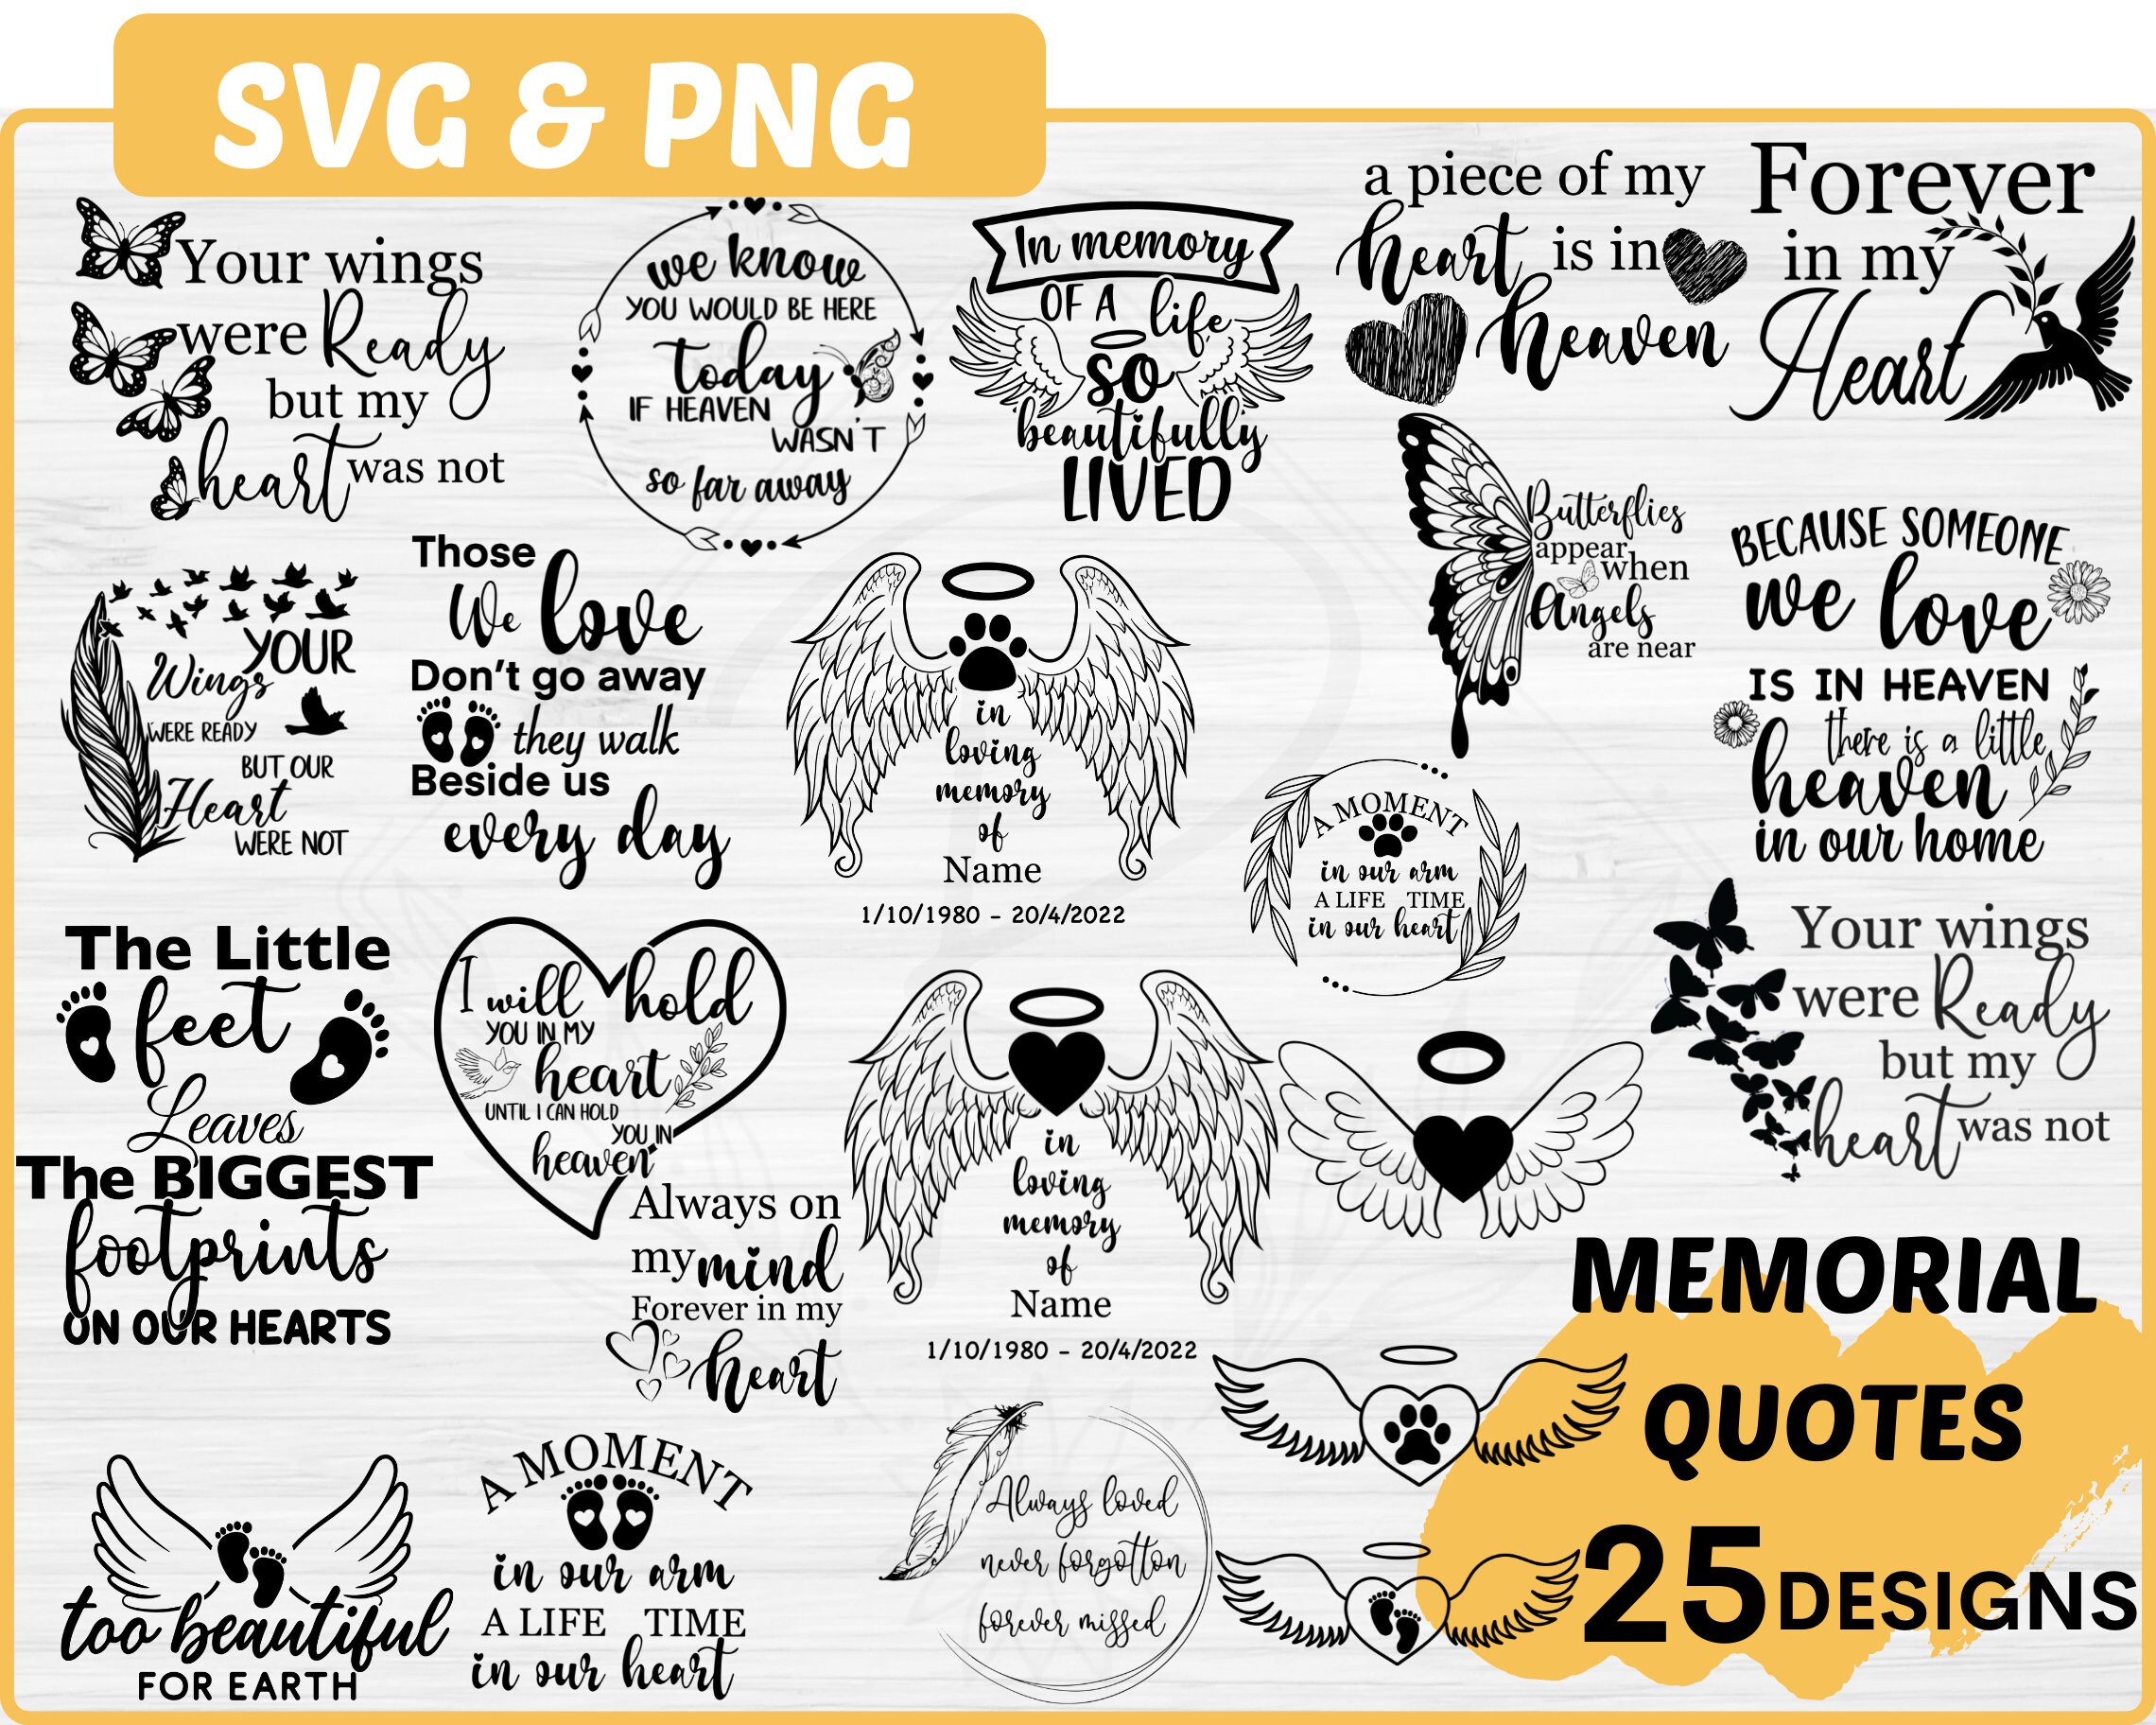 SVG & PNG
Your wings
were Ready
but my
heart was not
we know
YOU WOULD BE HERE
today
IF HEAVEN
WASN'T
so far away
In memory
OF A life
so
beautifully
LIVED
a piece of my
heart is in
heaven
Forever
in my
Heart
YOUR
Wings
WERE READY
BUT OUR
Heart
WERE NOT
Those
We love
Don't go away
they walk
Beside us
every day
in
loving
memory
of
Name
1/10/1980 - 20/4/2022
Butterflies
appear
when
Angels
are near
BECAUSE SOMEONE
we love
IS IN HEAVEN
there is a little
heaven
in our home
A MOMENT
in our arm
A LIFE TIME
in our heart
The Little
feet
Leaves
The BIGGEST
footprints
ON OUR HEARTS
I will hold
YOU IN MY
heart
UNTIL I CAN HOLD
YOU IN
heaven
Always on
my mind
Forever in my
heart
in
loving
memory
of
Name
1/10/1980 - 20/4/2022
Your wings
were Ready
but my
heart was not
too beautiful
FOR EARTH
A MOMENT
in our arm
A LIFE TIME
in our heart
Always loved
never forgotton
forever missed
MEMORIAL
QUOTES
25 DESIGNS